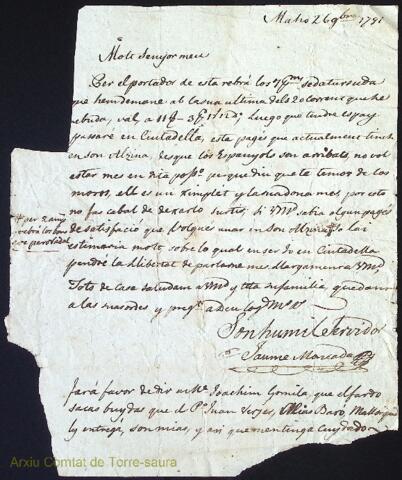 Mahó 26 9bre 1781
Molt Senyor meu
Per el portador de esta rebrá los
que hem demane al la sua ultima dels 20 corrent que he
rebuda, val, a 11 Luego que tendre espay
passaré en Ciutadella, esta pagés que actualment tinch
en son Alzina, desque los Espanyols son arribats, no vol
estar mes en dita poss.º perque diu que te temor de los
moros, ell es un simplet y la dona mes, per esto
no fas cabal de dexarlo surtir, si Vm sabia algun pages
de satisfacio que volgues anar en son Alzina lo
estimaria molt sobre lo qual en ser jo en Ciutadella
pendré la llibertat de parlarne mes llargament a Vm
Tots de Casa saludam a Vm y tota sa familia quedam
a las suas ordes y preg.
Son humil Servidor
Jaume Mercadal
per 2 añs
rebrá los
Fará favor de dir a Joachim Gomila, que el fardo
sacas buydas que el P.n Juan Alias Baró, Mallorqui
ly entregá, son mias, y asi que men tinga cuydado
Arxiu Comtat de Torre-saura